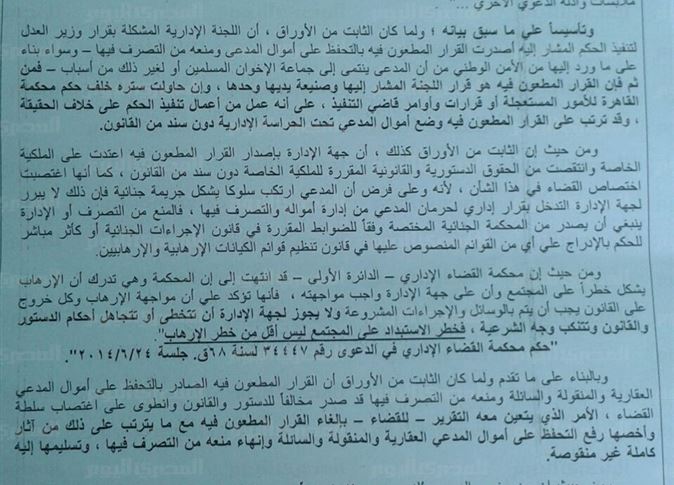 ملابسات وأدلة الدعوى الأخرى ..."
وتأسيساً علي ما سبق بيانه ؛ ولما كان الثابت من الأوراق ، أن اللجنة الإدارية المشكلة بقرار وزير العدل
لتنفيذ الحكم المشار إليه أصدرت القرار المطعون فيه بالتحفظ على أموال المدعي ومنعه من التصرف فيها – وسواء بناء
على ما ورد إليها من الأمن الوطني من أن المدعى ينتمى إلى جماعة الإخوان المسلمين أو لغير ذلك من أسباب – فمن
ثم فإن القرار المطعون فيه هو قرار اللجنة المشار إليها وصنيعة يديها وحدها ، وإن حاولت ستره خلف حكم محكمة
القاهرة للأمور المستعجلة أو قرارات وأوامر قاضي التنفيذ ، على أنه عمل من أعمال تنفيذ الحكم على خلاف الحقيقة
، وقد ترتب على القرار المطعون فيه وضع أموال المدعي تحت الحراسة الإدارية دون سند من القانون.
ومن حيث إن الثابت من الأوراق كذلك ، أن جهة الإدارة بإصدار القرار المطعون فيه اعتدت على الملكية
الخاصة وانتقصت من الحقوق الدستورية والقانونية المقررة للملكية الخاصة دون سند من القانون ، كما أنها اغتصبت
اختصاص القضاء في هذا الشأن ، لأنه وعلى فرض أن المدعي ارتكب سلوكا يشكل جريمة جنائية فإن ذلك لا يبرر
لجهة الإدارة التدخل بقرار إداري لحرمان المدعي من إدارة أمواله والتصرف فيها ، فالمنع من التصرف أو الإدارة
ينبغي أن يصدر من المحكمة الجنائية المختصة وفقاً للضوابط المقررة في قانون الإجراءات الجنائية أو كأثر مباشر
للحكم بالإدراج علي أي من القوائم المنصوص عليها في قانون تنظيم قوائم الكيانات الإرهابية والإرهابيين.
ومن حيث إن محكمة القضاء الإداري – الدائرة الأولى – قد انتهت إلى إن المحكمة وهي تدرك أن الإرهاب
يشكل خطراً على المجتمع وأن على جهة الإدارة واجب مواجهته ، فأنها تؤكد علي أن مواجهة الإرهاب وكل خروج
على القانون يجب أن يتم بالوسائل والإجراءات المشروعة ولا يجوز لجهة الإدارة أن تتخطى أو تتجاهل أحكام الدستور
والقانون وتتنكب وجه الشرعية ، فخطر الاستبداد على المجتمع ليس أقل من خطر الإرهاب".
"حكم محكمة القضاء الإداري في الدعوى رقم ٣٤٤٤٧ لسنة ٦٨ق. جلسة ٢٠١٤/٦/٢٤".
وبالبناء على ما تقدم ولما كان الثابت من الأوراق أن القرار المطعون فيه الصادر بالتحفظ على أموال المدعي
العقارية والمنقولة والسائلة ومنعه من التصرف فيها قد صدر مخالفاً للدستور والقانون وانطوى على اغتصاب سلطة
القضاء ، الأمر الذي يتعين معه التقرير – للقضاء – بإلغاء القرار المطعون فيه مع ما يترتب على ذلك من آثار
وأخصها رفع التحفظ على أموال المدعي العقارية والمنقولة والسائلة وإنهاء منعه من التصرف فيها ، وتسليمها إليه
كاملة غير منقوصة.